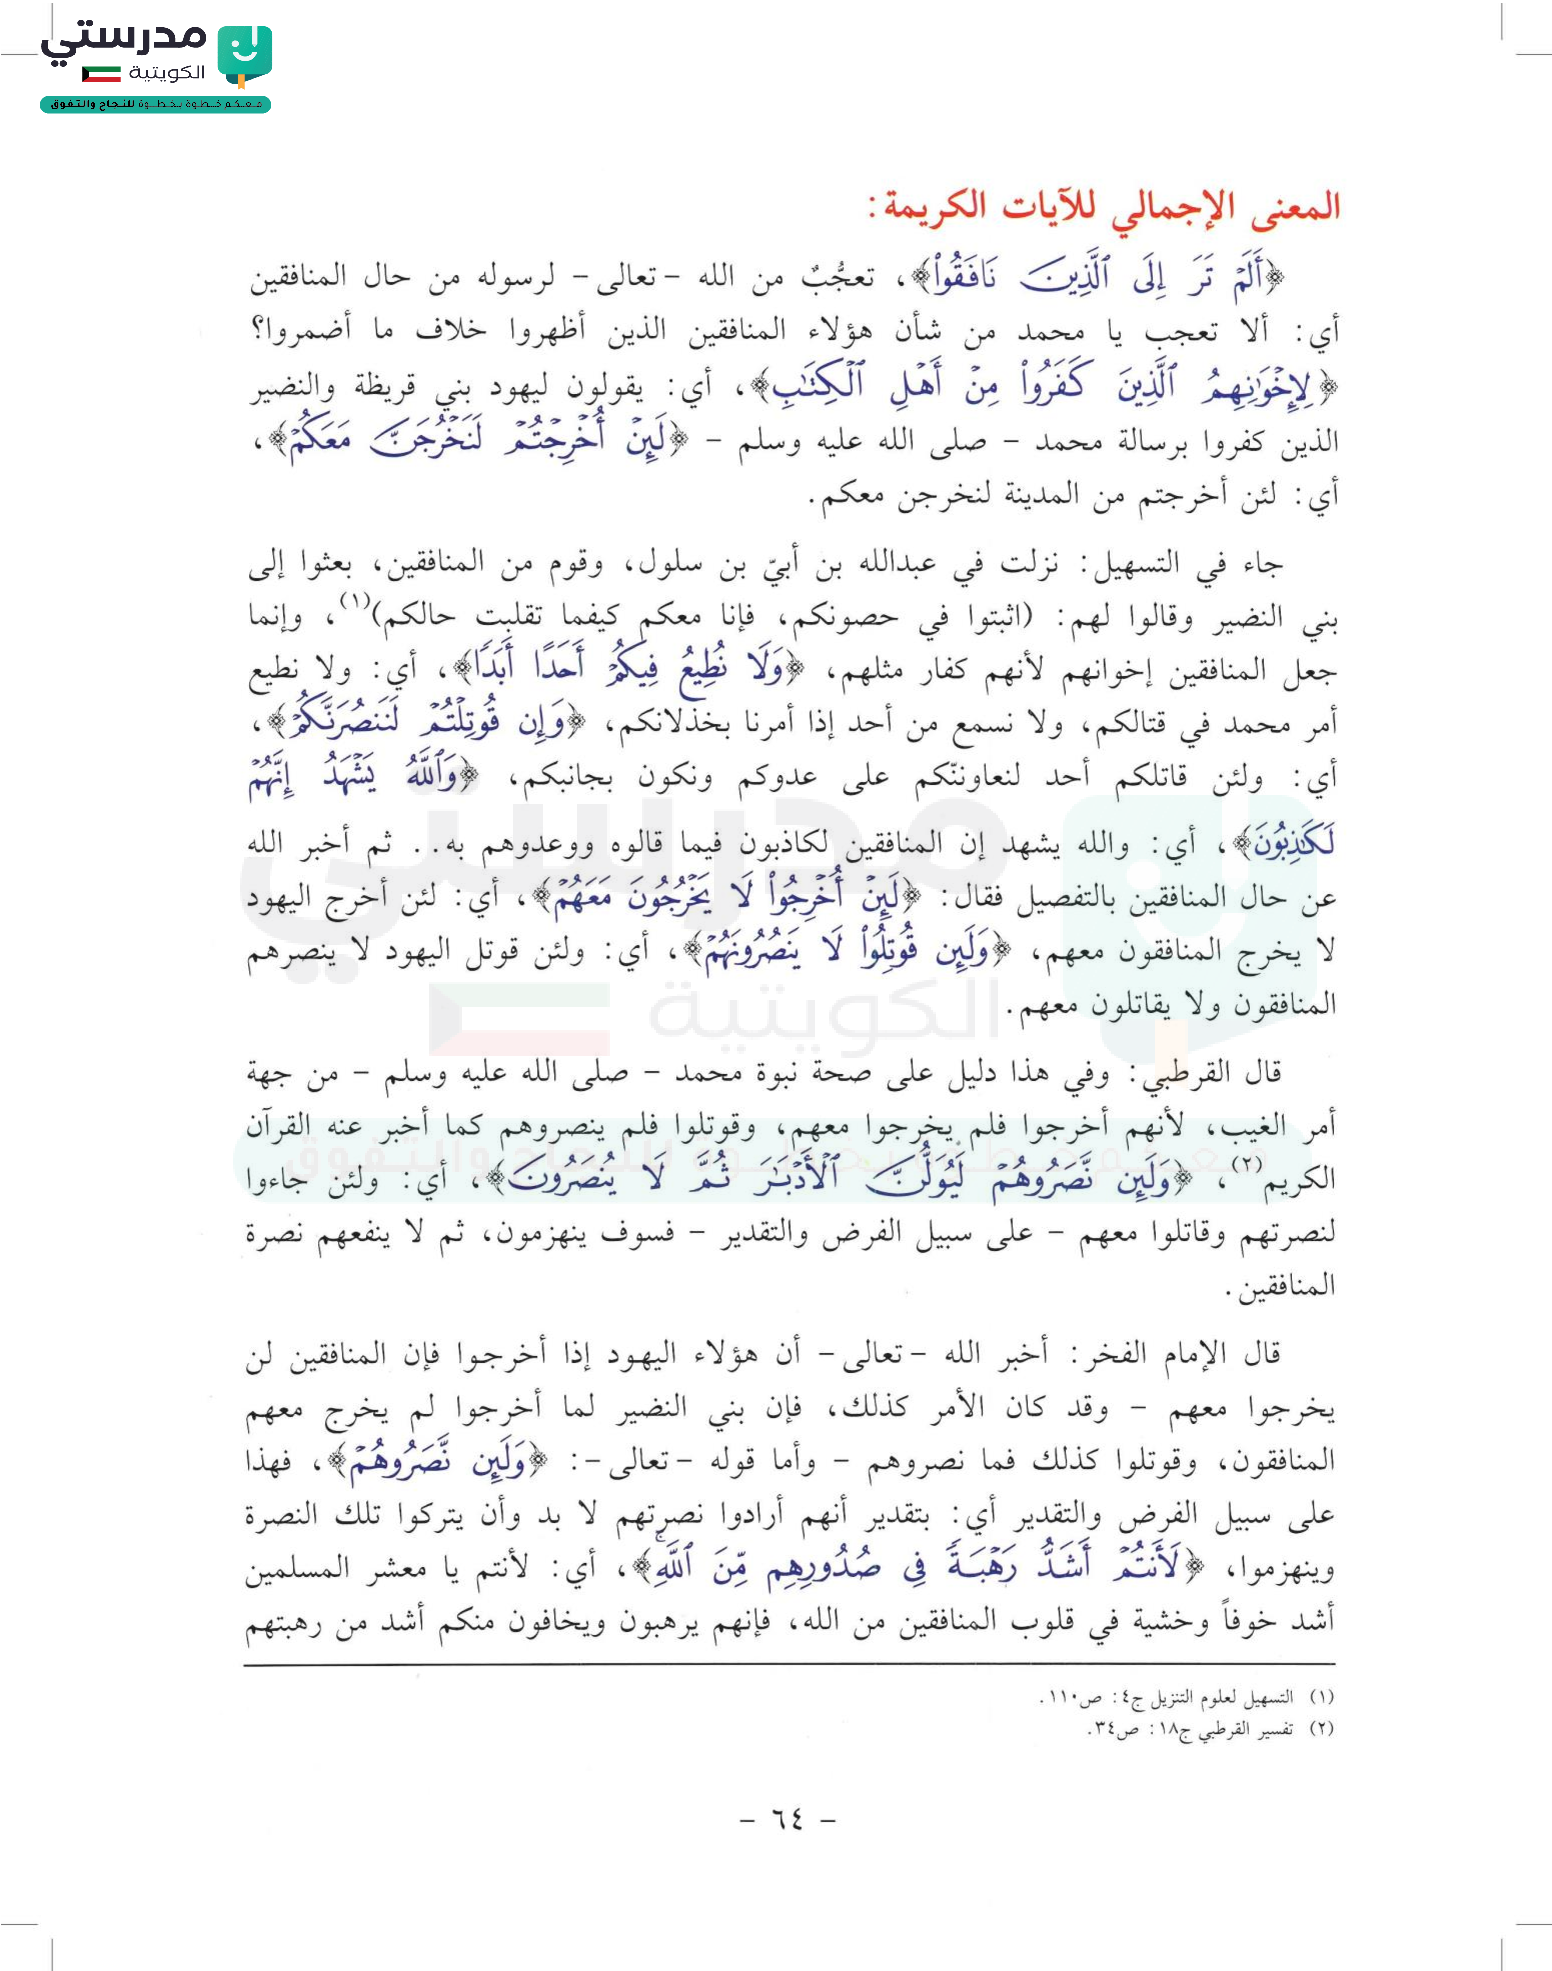 مدرستي
الكويتية
معكم خطوة بخطوة للنجاح والتفوق
المعنى الإجمالي للآيات الكريمة:
﴿أَلَمْ تَرَ إِلَى ٱلَّذِينَ نَافَقُوا۟﴾، تعجُّبٌ من الله -تعالى- لرسوله من حال المنافقين
أي: ألا تعجب يا محمد من شأن هؤلاء المنافقين الذين أظهروا خلاف ما أضمروا؟
﴿لِإِخْوَٰنِهِمُ ٱلَّذِينَ كَفَرُوا۟ مِنْ أَهْلِ ٱلْكِتَٰبِ﴾، أي: يقولون ليهود بني قريظة والنضير
الذين كفروا برسالة محمد - صلى الله عليه وسلم - ﴿لَئِنْ أُخْرِجْتُمْ لَنَخْرُجَنَّ مَعَكُمْ﴾،
أي: لئن أخرجتم من المدينة لنخرجن معكم.
جاء في التسهيل: نزلت في عبدالله بن أبيّ بن سلول، وقوم من المنافقين، بعثوا إلى
بني النضير وقالوا لهم: (اثبتوا في حصونكم، فإنا معكم كيفما تقلبت حالكم)(١)، وإنما
جعل المنافقين إخوانهم لأنهم كفار مثلهم، ﴿وَلَا نُطِيعُ فِيكُمْ أَحَدًا أَبَدًا﴾، أي: ولا نطيع
أمر محمد في قتالكم، ولا نسمع من أحد إذا أمرنا بخذلانكم، ﴿وَإِن قُوتِلْتُمْ لَنَنصُرَنَّكُمْ﴾،
أي: ولئن قاتلكم أحد لنعاوننّكم على عدوكم ونكون بجانبكم، ﴿وَٱللَّهُ يَشْهَدُ إِنَّهُمْ
لَكَٰذِبُونَ﴾، أي: والله يشهد إن المنافقين لكاذبون فيما قالوه ووعدوهم به.. ثم أخبر الله
عن حال المنافقين بالتفصيل فقال: ﴿لَئِنْ أُخْرِجُوا۟ لَا يَخْرُجُونَ مَعَهُمْ﴾، أي: لئن أخرج اليهود
لا يخرج المنافقون معهم، ﴿وَلَئِن قُوتِلُوا۟ لَا يَنصُرُونَهُمْ﴾، أي: ولئن قوتل اليهود لا ينصرهم
المنافقون ولا يقاتلون معهم.
قال القرطبي: وفي هذا دليل على صحة نبوة محمد - صلى الله عليه وسلم - من جهة
أمر الغيب، لأنهم أخرجوا فلم يخرجوا معهم، وقوتلوا فلم ينصروهم كما أخبر عنه القرآن
الكريم(٢)، ﴿وَلَئِن نَّصَرُوهُمْ لَيُوَلُّنَّ ٱلْأَدْبَٰرَ ثُمَّ لَا يُنصَرُونَ﴾، أي: ولئن جاءوا
لنصرتهم وقاتلوا معهم - على سبيل الفرض والتقدير - فسوف ينهزمون، ثم لا ينفعهم نصرة
المنافقين.
قال الإمام الفخر: أخبر الله -تعالى- أن هؤلاء اليهود إذا أخرجوا فإن المنافقين لن
يخرجوا معهم - وقد كان الأمر كذلك، فإن بني النضير لما أخرجوا لم يخرج معهم
المنافقون، وقوتلوا كذلك فما نصروهم - وأما قوله -تعالى-: ﴿وَلَئِن نَّصَرُوهُمْ﴾، فهذا
على سبيل الفرض والتقدير أي: بتقدير أنهم أرادوا نصرتهم لا بد وأن يتركوا تلك النصرة
وينهزموا، ﴿لَأَنتُمْ أَشَدُّ رَهْبَةً فِى صُدُورِهِم مِّنَ ٱللَّهِ ۚ﴾، أي: لأنتم يا معشر المسلمين
أشد خوفاً وخشية في قلوب المنافقين من الله، فإنهم يرهبون ويخافون منكم أشد من رهبتهم
(١) التسهيل لعلوم التنزيل ج٤: ص١١٠.
(٢) تفسير القرطبي ج١٨: ص٣٤.
- ٦٤ -